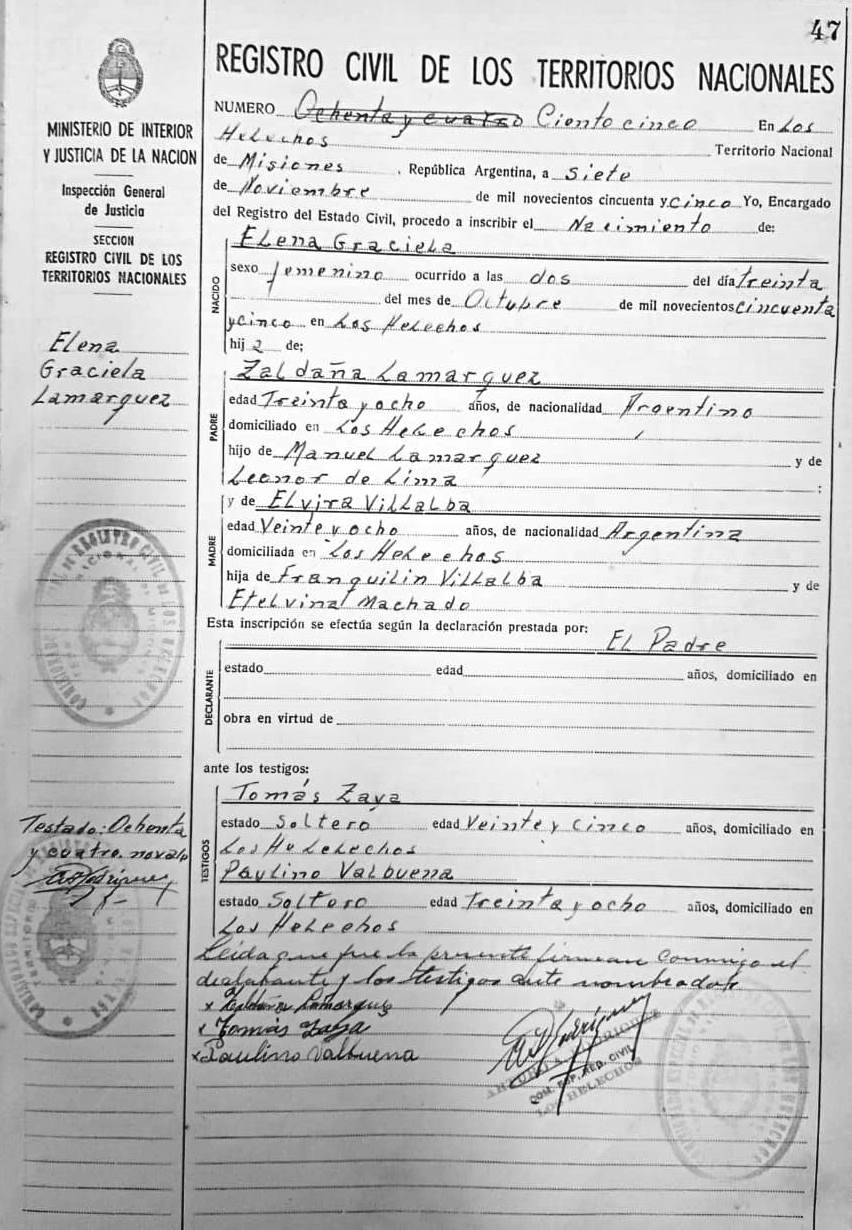 47
MINISTERIO DE INTERIOR
Y JUSTICIA DE LA NACION
Inspección General
de Justicia
SECCION
REGISTRO CIVIL DE LOS
TERRITORIOS NACIONALES
Elena
Graciela
Lamarquez
Testado: Ochenta
y cuatro. no vale
REGISTRO CIVIL DE LOS TERRITORIOS NACIONALES
NUMERO Ochenta y cuatro Ciento cinco En Los
Helechos Territorio Nacional
de Misiones, República Argentina, a siete
de Noviembre de mil novecientos cincuenta y cinco Yo, Encargado
del Registro del Estado Civil, procedo a inscribir el Nacimiento de:
NACIDO
Elena Graciela
sexo femenino ocurrido a las dos del día treinta
del mes de Octubre de mil novecientos cincuenta
y cinco en Los Helechos
hij a de;
PADRE
Zaldaña Lamarquez
edad Treinta y ocho años, de nacionalidad Argentino
domiciliado en Los Helechos
hijo de Manuel Lamarquez y de
Leonor de Lima ;
MADRE
y de Elvira Villalba
edad Veinte y ocho años, de nacionalidad Argentina
domiciliada en Los Helechos
hija de Franquilin Villalba y de
Etelvina Machado
Esta inscripción se efectúa según la declaración prestada por: El Padre
DECLARANTE
estado edad años, domiciliado en
obra en virtud de
ante los testigos:
TESTIGOS
Tomás Zaya
estado Soltero edad Veinte y cinco años, domiciliado en
Los Helelechos
Paulino Valbuena
estado Soltero edad Treinta y ocho años, domiciliado en
Los Helechos
Leida que fue la presente firman conmigo el
declarante y los testigos ante nombrados
x Zaldaña Lamarquez
x Tomás Zaya
x Paulino Valbuena
COM. ESP. REG. CIVIL
LOS HELECHOS